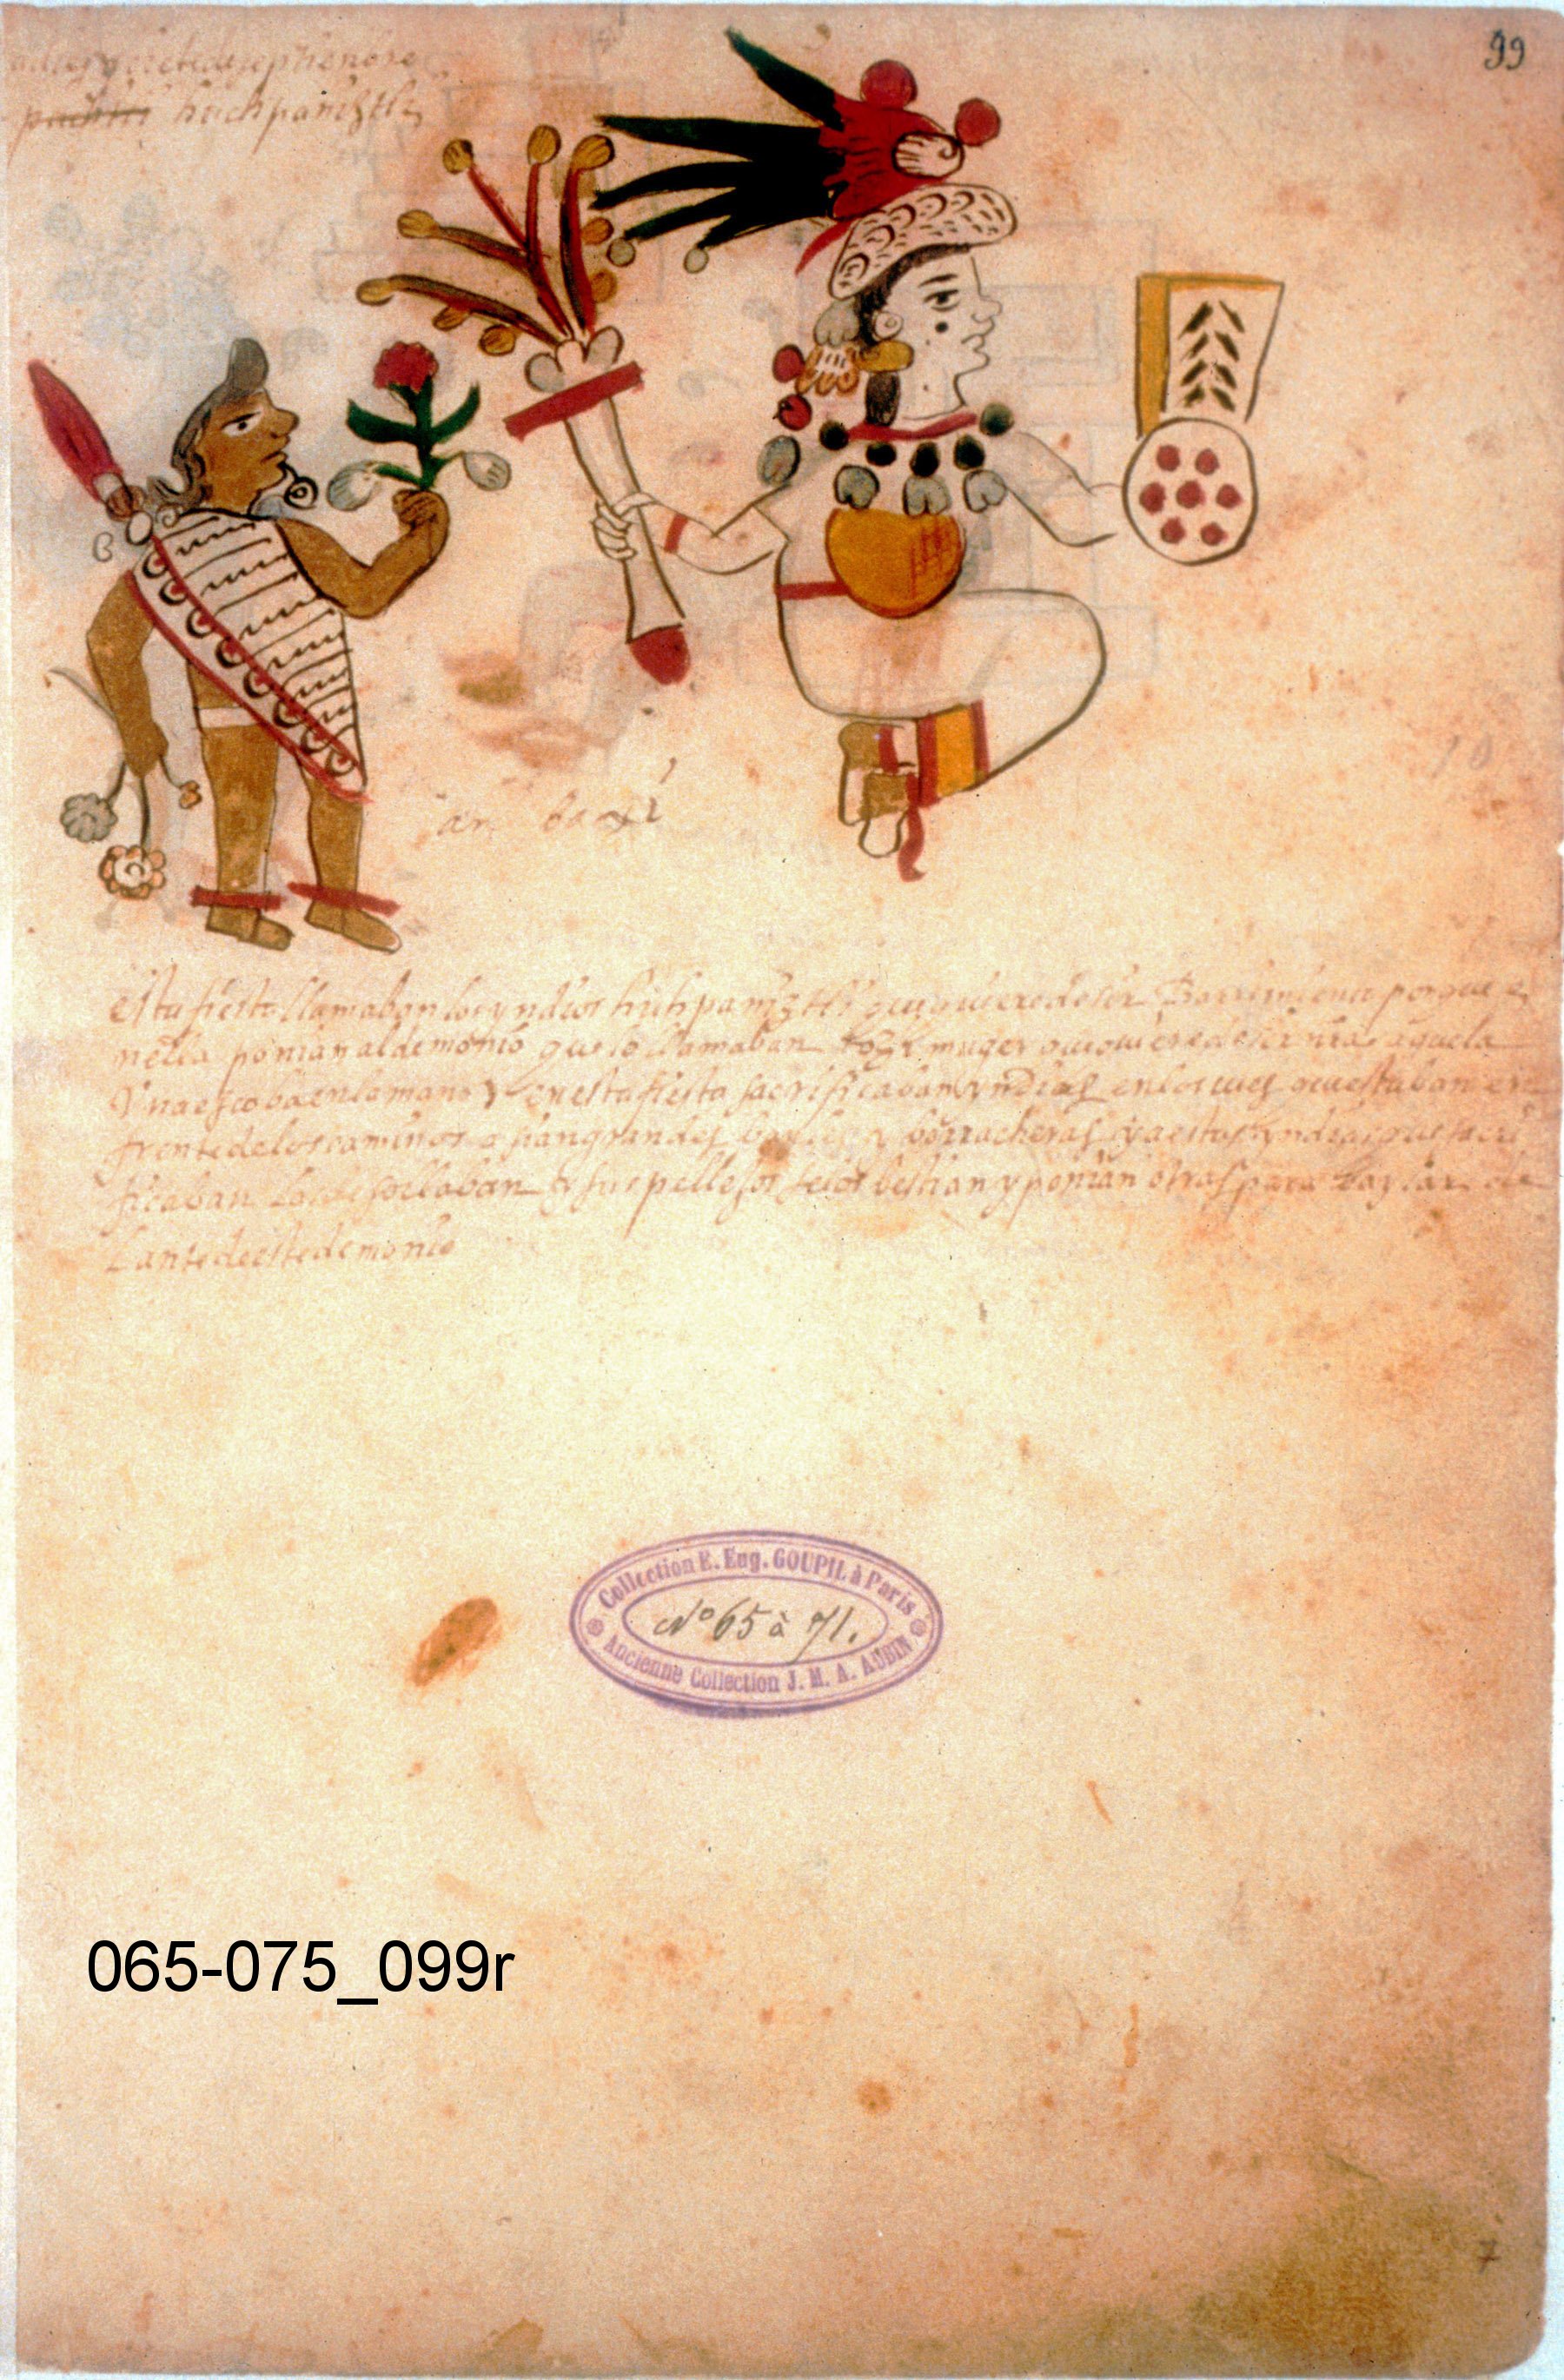 99
a diez y siete de septienbre
pachtli huchpaniztli
esta fiesta llamaban los yndios huchpaniztli que quiere desir barrimiento porque e
nella ponian al demonio que lo llamaban tozi muger que quiere desir nra aguela
Vna escoba en la mano y en esta fiesta sacrificaban yndias en los cues que estaban en
frente de los caminos asian grandes bayles y borracheras y a estas yndias que sacri
ficaban las desollaban y sus pellejos se los bestian y ponian otras para baylar de
lante de este demonio
Collection E. Eug. GOUPIL à Paris
No 65 à 71.
Ancienne Collection J. M. A. AUBIN
065-075_099r
7